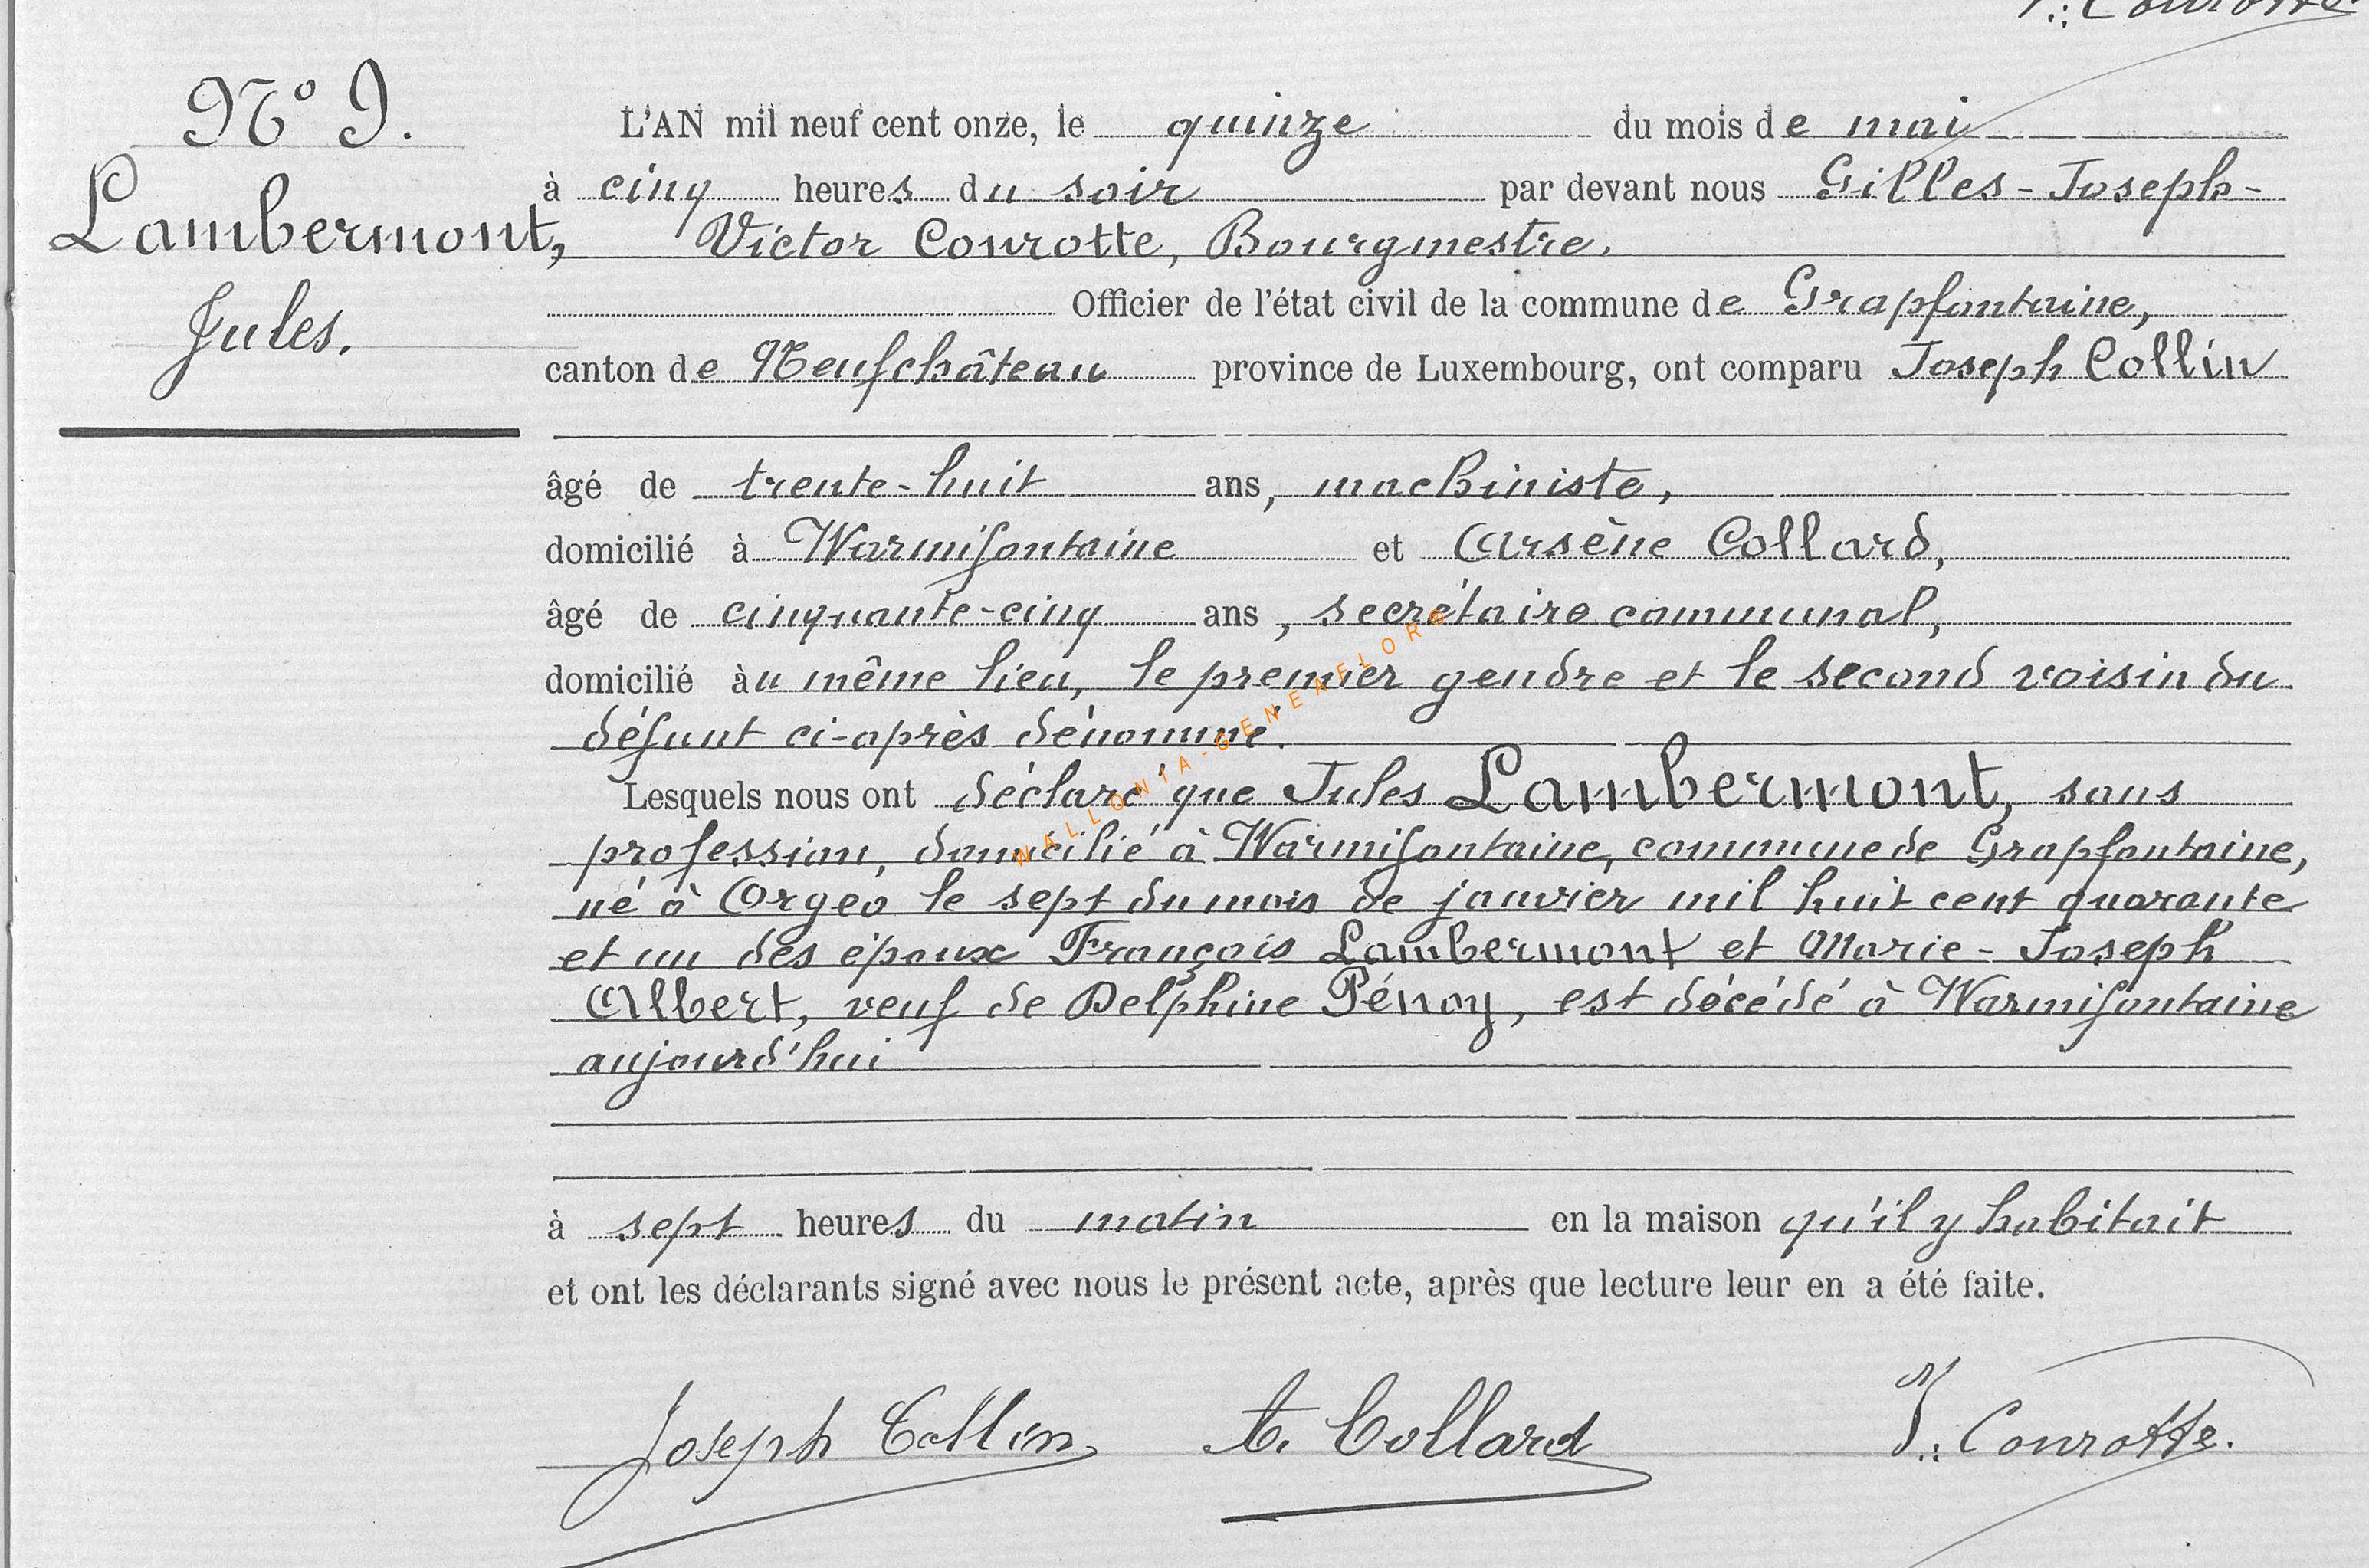 V: Conrotte
N° 9.
Lambermont,
Jules.
L'AN mil neuf cent onze, le quinze du mois de mai
à cinq heures du soir par devant nous Gilles-Joseph-
Victor Conrotte, Bourgmestre,
Officier de l'état civil de la commune de Grapfontaine,
canton de Neufchâteau province de Luxembourg, ont comparu Joseph Collin
âgé de trente-huit ans, machiniste,
domicilié à Warmifontaine et Arsène Collard,
âgé de cinquante-cinq ans, secrétaire communal,
domicilié au même lieu, le premier gendre et le second voisin du
défunt ci-après dénommé.
Lesquels nous ont déclaré que Jules Lambermont, sans
profession, domicilié à Warmifontaine, commune de Grapfontaine,
né à Orgeo le sept du mois de janvier mil huit cent quarante
et un des époux François Lambermont et Marie-Joseph
Albert, veuf de Delphine Pénoy, est décédé à Warmifontaine
aujourd'hui
à sept heures du matin en la maison qu'il y habitait
et ont les déclarants signé avec nous le présent acte, après que lecture leur en a été faite.
Joseph Collin A. Collard V: Conrotte.
WALLONIA-GENEAELORG